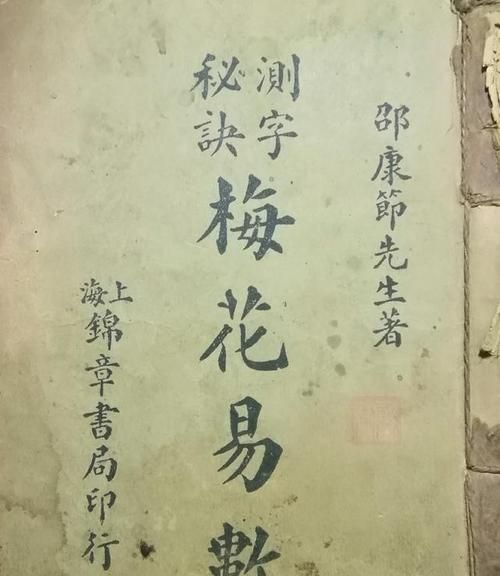 邵康節先生著
測字
秘訣
梅花易數
上海錦章書局印行